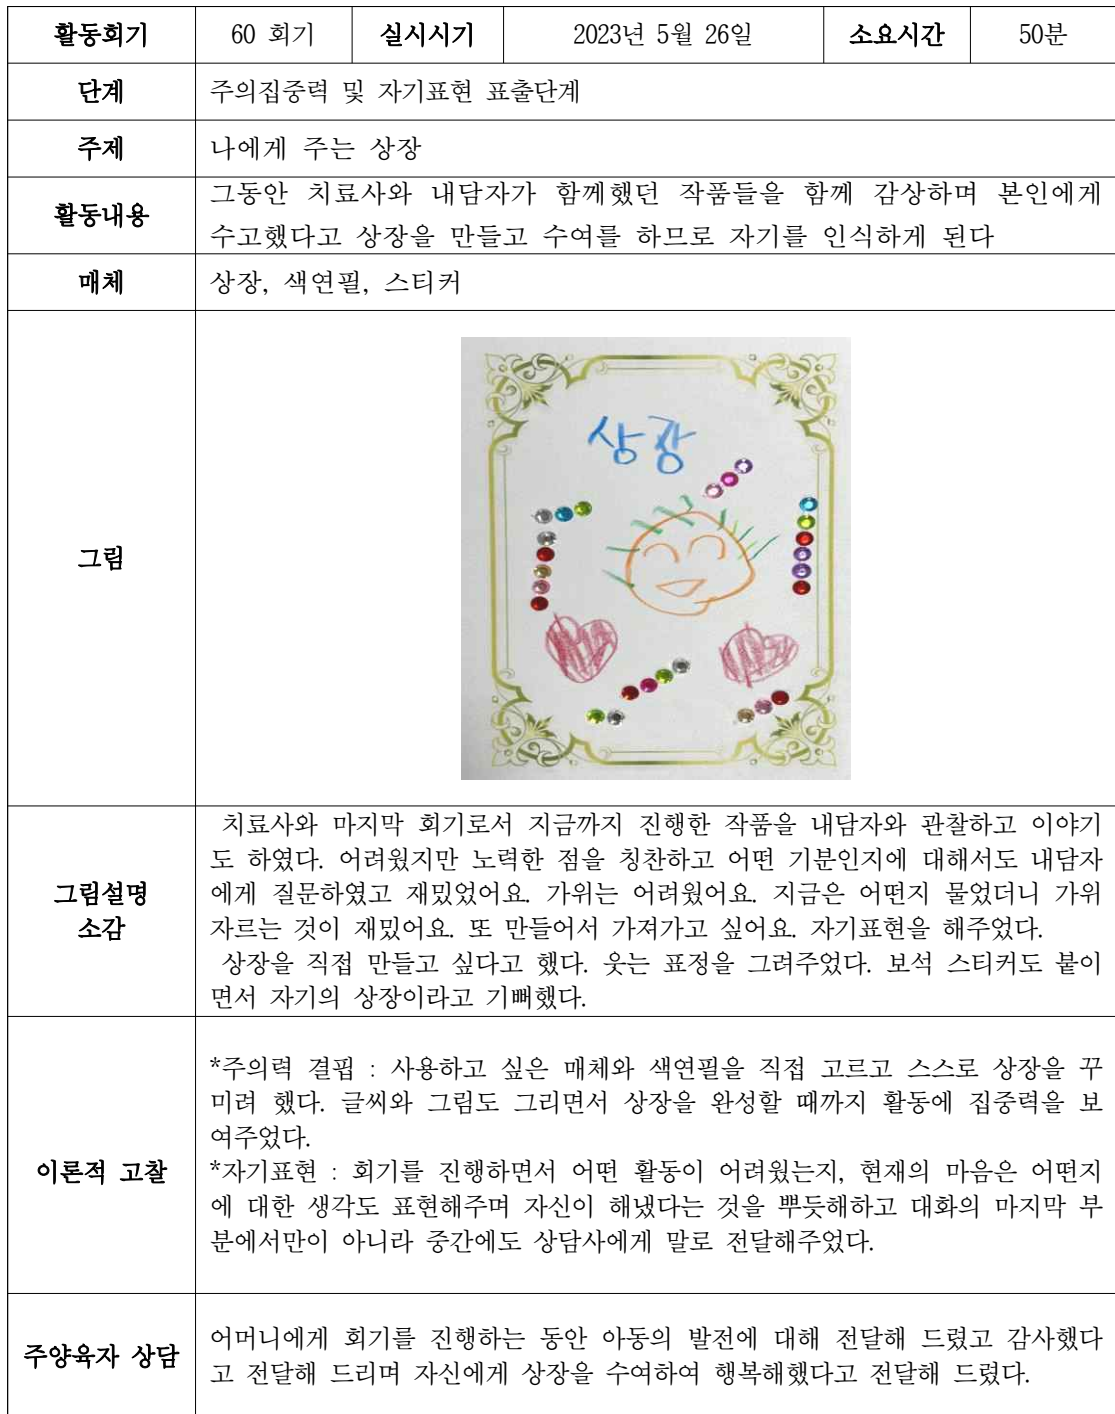 활동회기 60 회기 실시시기 2023년 5월 26일 소요시간 50분
단계 주의집중력 및 자기표현 표출단계
주제 나에게 주는 상장
활동내용 그동안 치료사와 내담자가 함께했던 작품들을 함께 감상하며 본인에게
수고했다고 상장을 만들고 수여를 하므로 자기를 인식하게 된다
매체 상장, 색연필, 스티커
그림
상장
그림설명
소감
치료사와 마지막 회기로서 지금까지 진행한 작품을 내담자와 관찰하고 이야기
도 하였다. 어려웠지만 노력한 점을 칭찬하고 어떤 기분인지에 대해서도 내담자
에게 질문하였고 재밌었어요. 가위는 어려웠어요. 지금은 어떤지 물었더니 가위
자르는 것이 재밌어요. 또 만들어서 가져가고 싶어요. 자기표현을 해주었다.
상장을 직접 만들고 싶다고 했다. 웃는 표정을 그려주었다. 보석 스티커도 붙이
면서 자기의 상장이라고 기뻐했다.
이론적 고찰
*주의력 결핍 : 사용하고 싶은 매체와 색연필을 직접 고르고 스스로 상장을 꾸
미려 했다. 글씨와 그림도 그리면서 상장을 완성할 때까지 활동에 집중력을 보
여주었다.
*자기표현 : 회기를 진행하면서 어떤 활동이 어려웠는지, 현재의 마음은 어떤지
에 대한 생각도 표현해주며 자신이 해냈다는 것을 뿌듯해하고 대화의 마지막 부
분에서만이 아니라 중간에도 상담사에게 말로 전달해주었다.
주양육자 상담
어머니에게 회기를 진행하는 동안 아동의 발전에 대해 전달해 드렸고 감사했다
고 전달해 드리며 자신에게 상장을 수여하여 행복해했다고 전달해 드렸다.